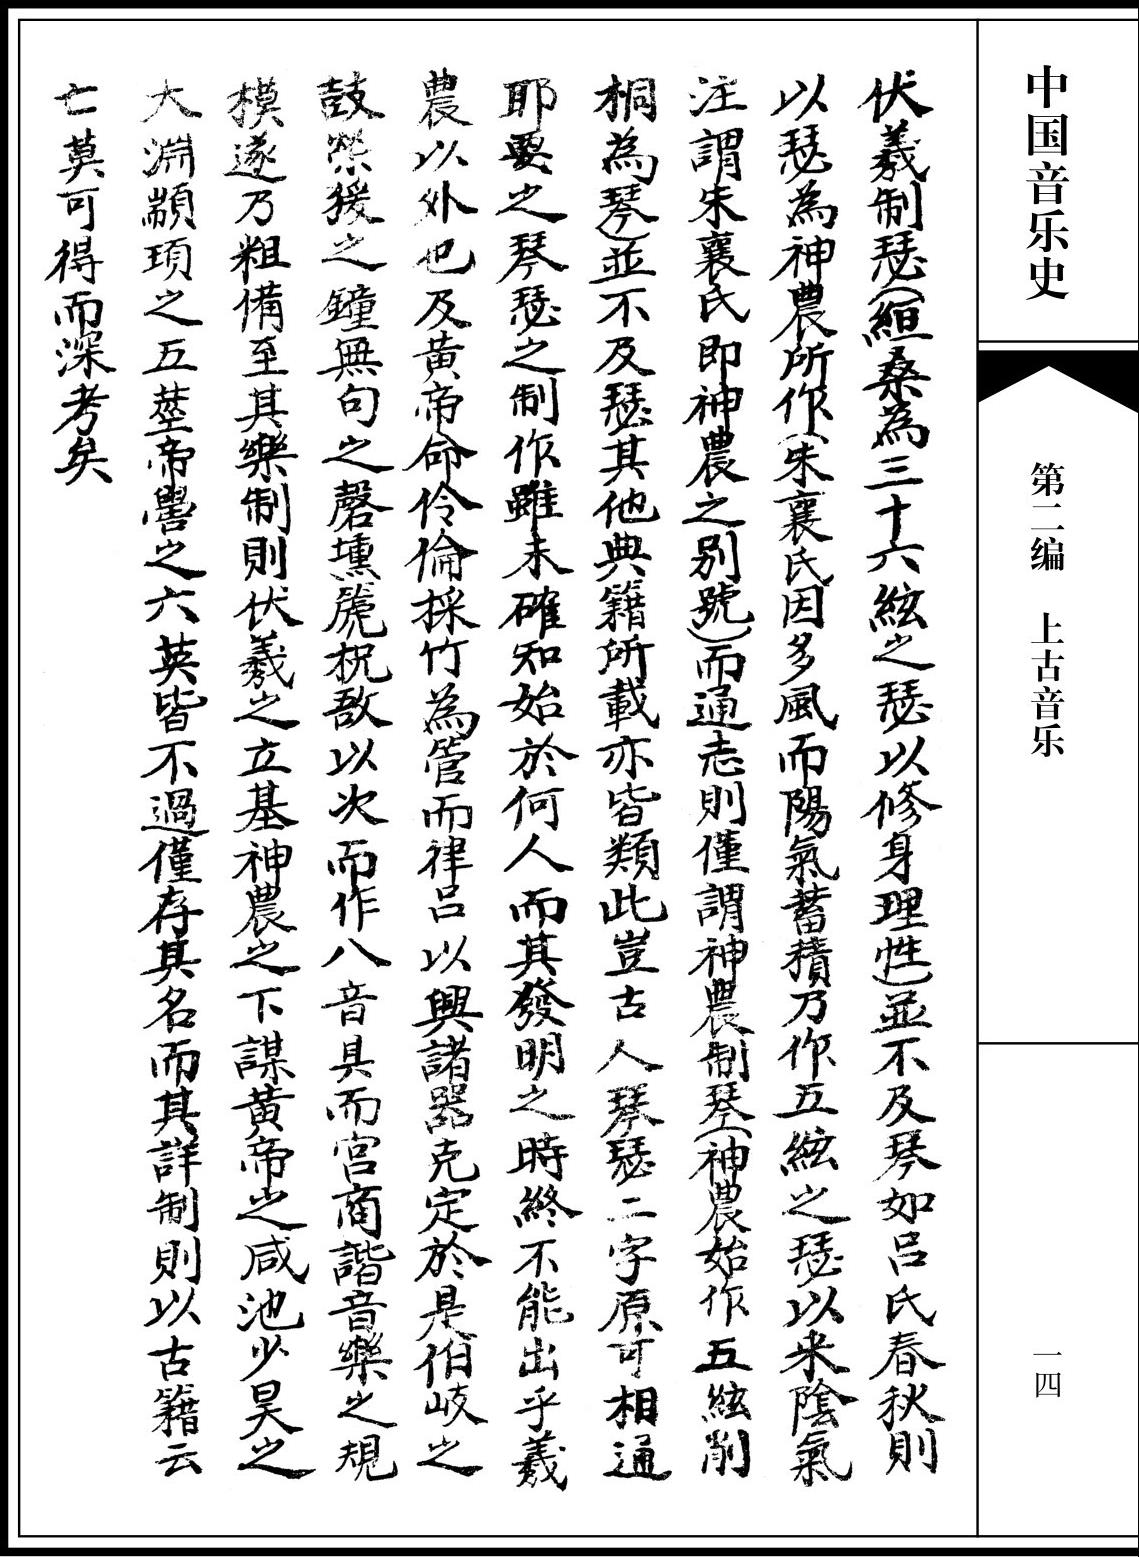 中国音乐史
第二编　上古音乐
一四
伏羲制瑟（絙桑為三十六絃之瑟以修身理性）並不及琴如呂氏春秋則
以瑟為神農所作（朱襄氏因多風而陽氣蓄積乃作五絃之瑟以来陰氣
注謂朱襄氏即神農之别號）而通志則僅謂神農制琴（神農始作五絃削
桐為琴）並不及瑟其他典籍所載亦皆類此豈古人琴瑟二字原可相通
耶要之琴瑟之制作雖未確知始於何人而其發明之時終不能出乎羲
農以外也及黄帝命伶倫採竹為管而律呂以興諸器克定於是伯岐之
鼓榮猨之鐘無句之磬壎篪柷敔以次而作八音具而宫商諧音樂之規
模遂乃粗備至其樂制則伏羲之立基神農之下謀黄帝之咸池少昊之
大淵顓頊之五莖帝嚳之六英皆不過僅存其名而其詳制則以古籍云
亡莫可得而深考矣